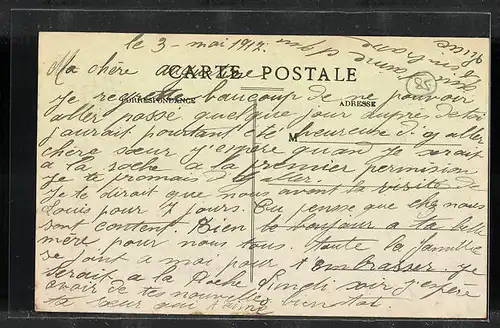 le 3 - mai 1917.
Ma chère
CARTE POSTALE
CORRESPONDANCE
ADRESSE
M
je regrette beaucoup de ne pouvoir
aller passé quelque jour auprès de toi
aurait pourtant été heureuse d'y aller
chère sœur j'espère quand je serait
a la roche a la premier permision
je te promais d'y aller.
je te dirait que nous avont la visite de
Louis pour 7 jours. Tu pense que chez nous
sont content. Bien le bonjour a ta belle
mère pour nous tous. toute la famille
se joint a moi pour t'embrasser. je
serait a la Roche Lundi soir j'espère
avoir de tes nouvelles bientot.
ta sœur qui t'aime